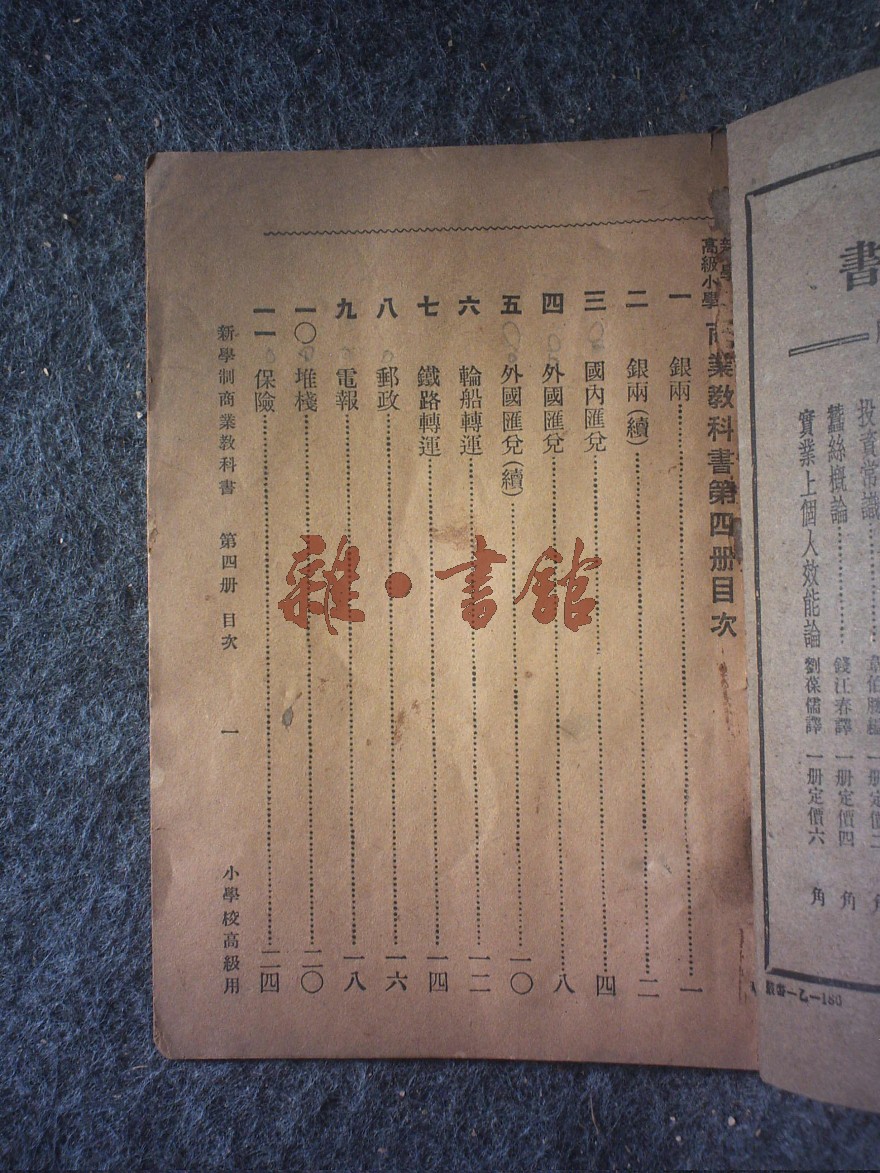 高級小學 商業教科書第四册目次
一 銀兩 一
二 銀兩(續) 二
三 國內匯兌 四
四 外國匯兌 八
五 外國匯兌(續) 一〇
六 輪船轉運 一二
七 鐵路轉運 一四
八 郵政 一六
九 電報 一八
一〇 堆棧 二〇
一一 保險 二四
新學制商業教科書 第四册 目次 一 小學校高級用
雜·書館
書
投資常識
蠶絲概論 錢江春譯 一册定價四角
實業上個人效能論 劉葆儒譯 一册定價六角
叢書一乙一180